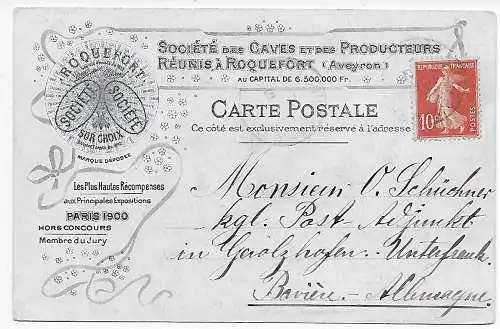 ROQUEFORT
SOCIÉTÉ SOCIÉTÉ
SUR CHOIX
MARQUE DÉPOSÉE
Les Plus Hautes Récompenses
aux Principales Expositions
PARIS 1900
HORS CONCOURS
Membre du Jury
SOCIÉTÉ DES CAVES ET DES PRODUCTEURS
RÉUNIS À ROQUEFORT (Aveyron)
AU CAPITAL DE 6.500.000 Fr.
CARTE POSTALE
Ce côté est exclusivement réservé à l'adresse
REPUBLIQUE FRANÇAISE
10
POSTES
Monsieur O. Schüchner
kgl. Post Adjunkt
in Gerolzhofen - Unterfrank.
Bavière - Allemagne.